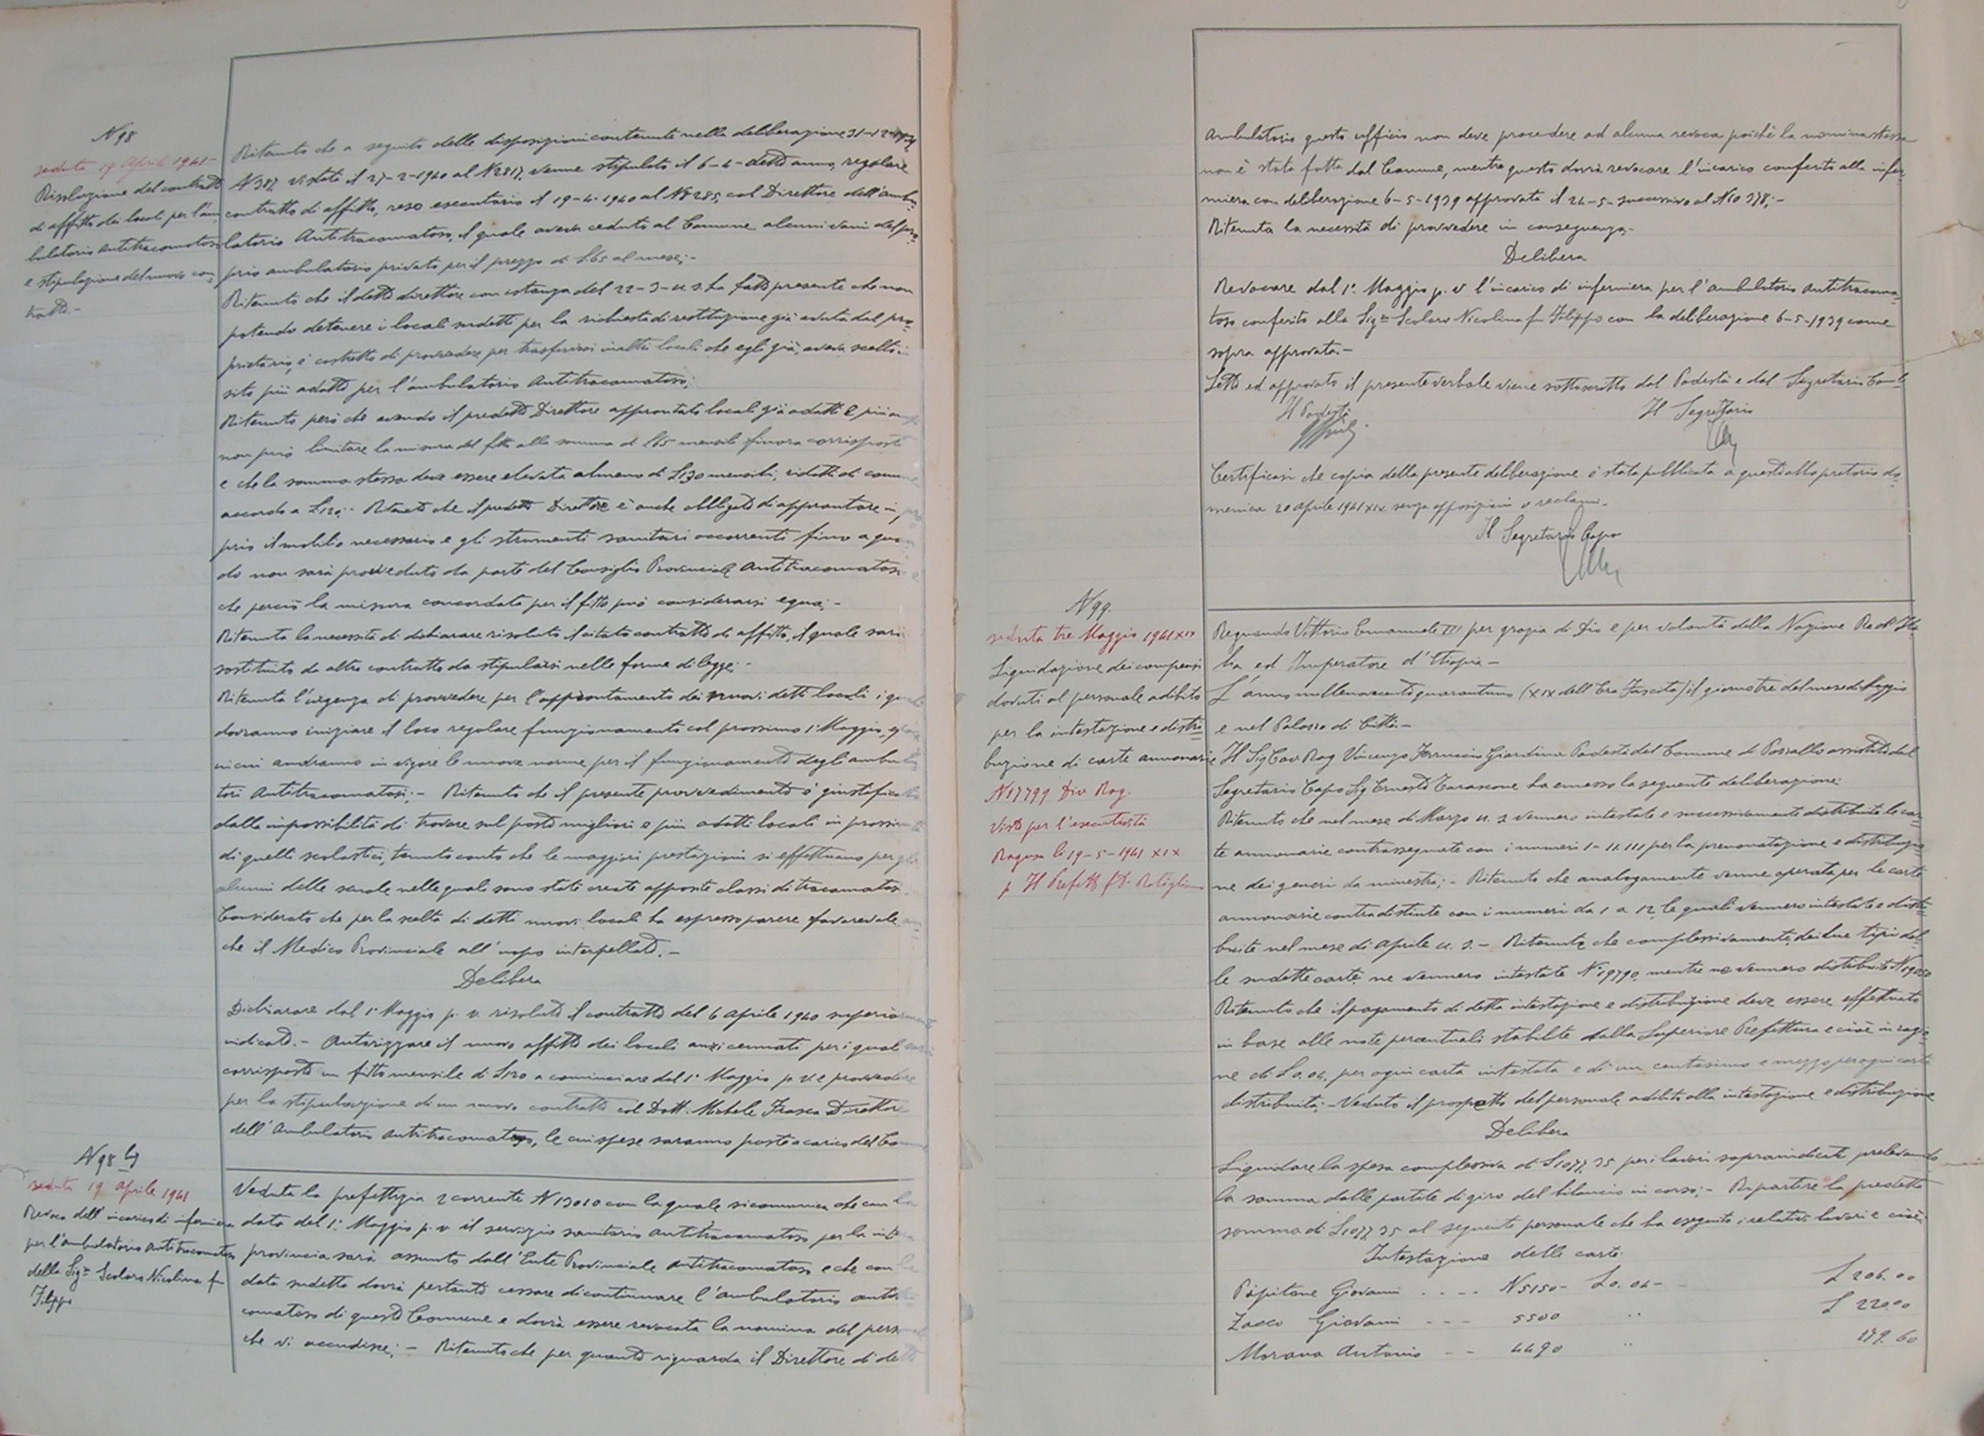 N 98
seduta 19 Aprile 1941-
Risoluzione del contratto
di affitto dei locali per l'am
bulatorio antitracomatoso
e stipulazione del nuovo con
tratto.-
Ritenuto che a seguito delle disposizioni contenute nella deliberazione 31-12-
N 387 vistata il 27-2-1940 al N 2817, venne stipulato il 6-4- detto anno, regolare
contratto di affitto, reso esecutorio il 19-4-1940 al N 8285, col Direttore dell'ambu-
latorio Antitracomatoso, il quale aveva ceduto al Comune alcuni vani del pro-
prio ambulatorio privato per il prezzo di L 65 al mese;-
Ritenuto che il detto direttore con istanza del 22-3-u.s. ha fatto presente che non
potendo detenere i locali suddetti per la richiesta di restituzione già avuta dal pro-
prietario, è costretto di provvedere per trasferirsi in altri locali che egli già aveva scelto in
sito più adatto per l'ambulatorio Antitracomatoso;
Ritenuto però che avendo il predetto Direttore approntato locali già adatti e più
non può limitare la misura del fitto alla somma di finora corrisposta
e che la somma stessa deve essere elevata almeno di L 130 mensili, ridotti di comune
accordo a L 120;- Ritenuto che il predetto Direttore è anche obbligato di approntare in pro
prio il mobilio necessario e gli strumenti sanitari occorrenti fino a quan
do non sarà provveduto da parte del Consiglio Provinciale Antitracomatoso e
che perciò la misura concordata per il fitto può considerarsi equa;-
Ritenuta la necessità di dichiarare risoluto il citato contratto di affitto, il quale sarà
sostituito da altro contratto da stipularsi nelle forme di legge;-
Ritenuta l'urgenza di provvedere per l'approntamento dei nuovi detti locali, i quali
dovranno iniziare il loro regolare funzionamento col prossimo 1° Maggio,
in cui andranno in vigore le nuove norme per il funzionamento degli ambula
tori Antitracomatosi;- Ritenuto che il presente provvedimento è giustificato
dalla impossibilità di trovare sul posto migliori e più adatti locali in prossimità
di quelli scolastici, tenuto conto che le maggiori prestazioni si effettuano per gli
alunni delle scuole nelle quali sono state create apposite classi di tracomatosi.
Considerato che per la scelta di detti nuovi locali ha espresso parere favorevole an
che il Medico Provinciale all'uopo interpellato.-
Delibera
Dichiarare dal 1° Maggio p. v. risoluto il contratto del 6 Aprile 1940 superior
indicato.- Autorizzare il nuovo affitto dei locali anzicennati per i quali sarà
corrisposto un fitto mensile di L 120 a cominciare dal 1° Maggio p. v. e provvedere
per la stipulazione di un nuovo contratto col Dott. Michele Frasca Direttore
dell'Ambulatorio Antitracomatoso, le cui spese saranno poste a carico del Co
N 98
seduta 19 Aprile 1941
Revoca dell'incarico di infermiera
per l'ambulatorio Antitracomatoso
della Sig.ra Scolaro Nicolina fu
Filippo
Veduta la prefettizia 2 corrente N 13010 con la quale si comunica che con la
data del 1° Maggio p. v. il servizio sanitario antitracomatoso per la inte
provincia sarà assunto dall'Ente Provinciale antitracomatoso e che con la
data suddetta dovrà pertanto cessare di continuare l'ambulatorio antitra
comatoso di questo Comune e dovrà essere revocata la nomina del personale
che vi accudisce;- Ritenuto che per quanto riguarda il Direttore di detto
Ambulatorio questo ufficio non deve procedere ad alcuna revoca poichè la nomina stessa
non è stata fatta dal Comune, mentre questo dovrà revocare l'incarico conferito alla infer-
miera con deliberazione 6-5-1939 approvata il 24-5-successivo al N 10378;-
Ritenuta la necessità di provvedere in conseguenza;-
Delibera
Revocare dal 1° Maggio p. v. l'incarico di infermiera per l'ambulatorio antitracoma-
toso conferito alla Sig.ra Scolaro Nicolina fu Filippo con la deliberazione 6-5-1939 come
sopra approvata.-
Letto ed approvato il presente verbale viene sottoscritto dal Podestà e dal Segretario Com.le
Il Podestà Il Segretario
Certificasi che copia della presente deliberazione è stata pubblicata a questo albo pretorio do-
menica 20 Aprile 1941 XIX senza opposizioni o reclami.
Il Segretario Capo
N 99.
seduta tre Maggio 1941 XIX
Liquidazione dei compensi
dovuti al personale adibito
per la intestazione e distri-
buzione di carte annonarie
N 17799 Div Rag.
Visto per l'esecutività
Ragusa lì 19-5-1941 XIX
p. Il Prefetto
Regnando Vittorio Emanuele III per grazia di Dio e per volontà della Nazione Re d'Ita
lia ed Imperatore d'Etiopia-
L'anno millenovecentoquarantuno (XIX dell'Era Fascista) il giorno tre del mese di Maggio
e nel Palazzo di Città.-
Il Sig Cav Rag Vincenzo Ferruccio Giardina Podestà del Comune di Pozzallo assistito dal
Segretario Capo Sg Ernesto Tarascone ha emesso la seguente deliberazione:
Ritenuto che nel mese di Marzo u. s. vennero intestate e successivamente distribuite le car-
te annonarie contrassegnate con i numeri I-II-III per la prenotazione e distribuzio-
ne dei generi da minestra;- Ritenuto che analogamente venne operato per le carte
annonarie contradistinte con i numeri da 1 a 12 le quali vennero intestate e distri-
buite nel mese di Aprile u. s.- Ritenuto che complessivamente, dei due tipi del-
le suddette carte, ne vennero intestate N° 19790, mentre ne vennero distribuite N
Ritenuto che il pagamento di detta intestazione e distribuzione deve essere effettuato
in base alle note percentuali stabilite dalla Superiore Prefettura e cioè in ragio-
ne di L 0.04, per ogni carta intestata e di un centesimo e mezzo per ogni carta
distribuita;- Veduto il prospetto del personale addibito alla intestazione e distribuzione
Delibera
Liquidare la spesa complessiva di L 1077,35 per i lavori sopraindicati prelevando
la somma dalle partite di giro del bilancio in corso;- Ripartire la predetta
somma di L 1077 35 al seguente personale che ha eseguito i relativi lavori e cioè:
Intestazione delle carte:
Papitone Giovanni .... N 5150- L 0.04- L 206.00
Zacco Giovanni --- 5500 " L 220.00
Morana Antonio -- 4490 " 179.60